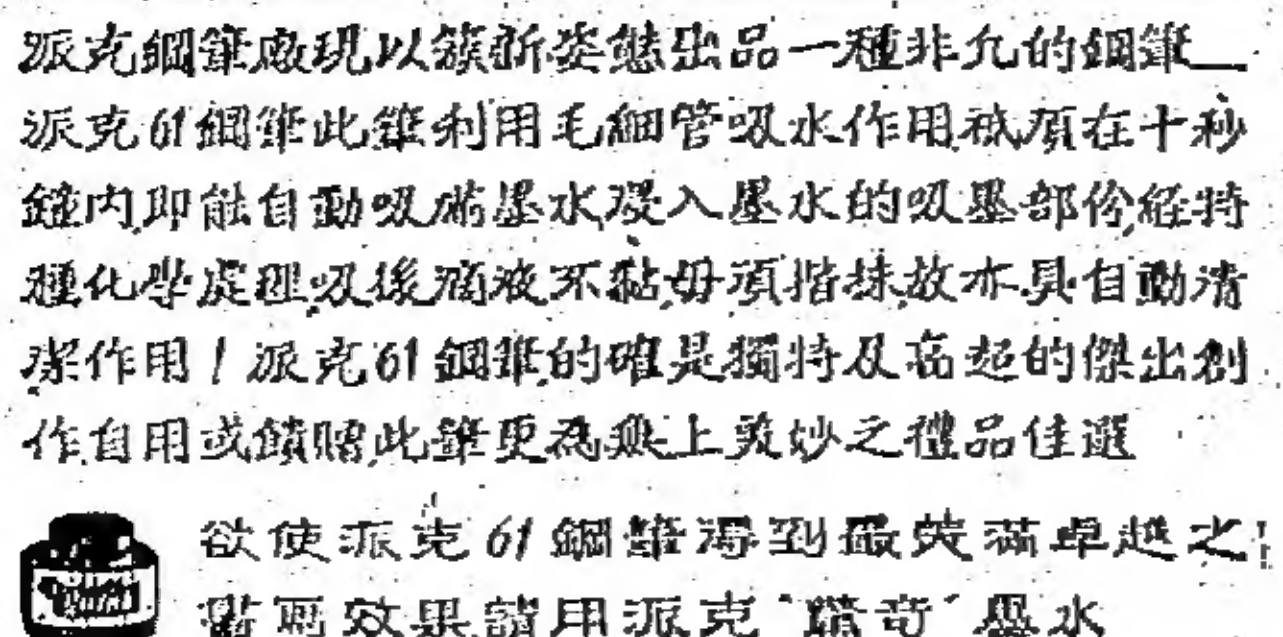 派克鋼筆廠現以簇新姿態出品一種非凡的鋼筆—
派克61鋼筆此筆利用毛細管吸水作用祇須在十秒
鐘內即能自動吸滿墨水浸入墨水的吸墨部份經特
種化學處理吸後滴液不黏毋須揩抹故亦具自動清
潔作用！派克61鋼筆的確是獨特及高超的傑出創
作自用或饋贈此筆更為無上美妙之禮品佳選
欲使派克61鋼筆得到最美滿卓越之
書寫效果請用派克
墨水